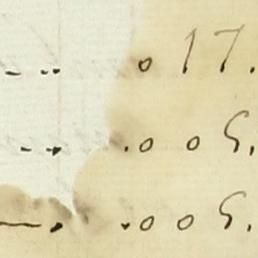 - .. 0 17.
- .. . 0 0 5.
— . . 0 0 5.